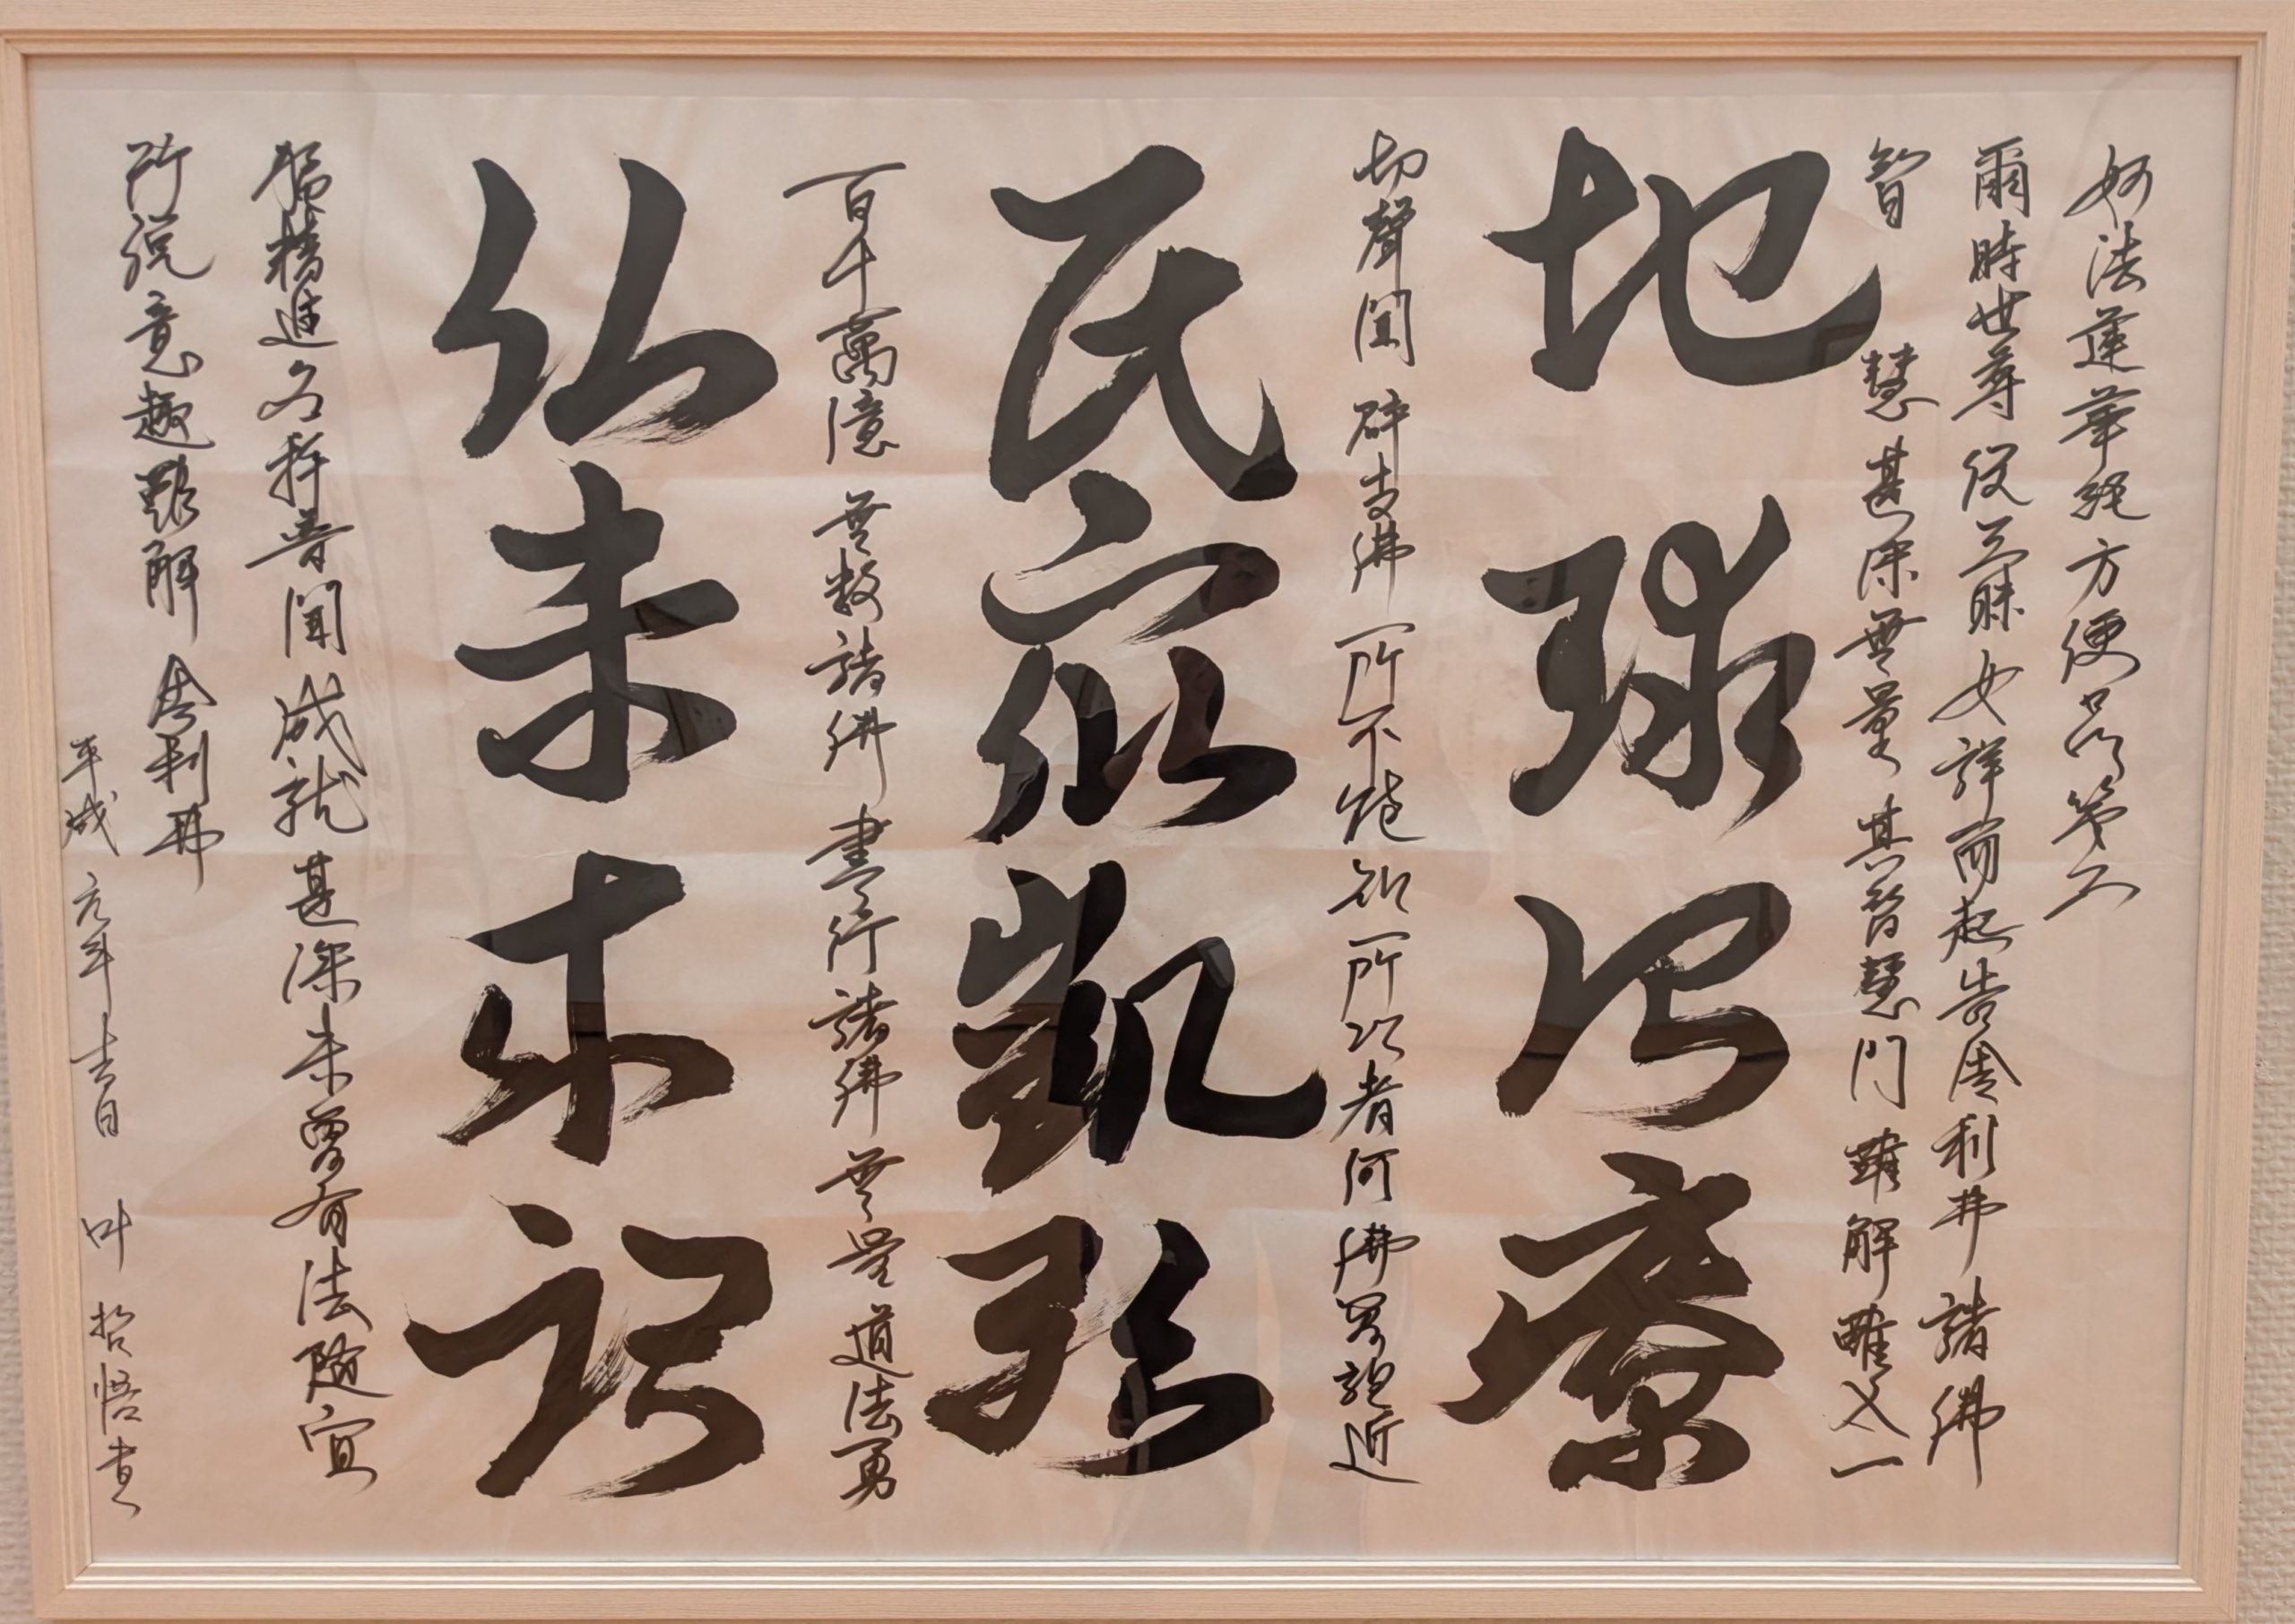 妙法蓮華経方便品第二
爾時世尊従三昧安詳而起告舎利弗諸佛
智慧甚深無量其智慧門難解難入一
地球治療
切聲聞辟支佛所不能知所以者何佛曽親近
民衆凱
百千萬億無数諸佛盡行諸佛無量道法勇
仏未来記
猛精進名称普聞成就甚深未曽有法随宜
所説意趣難解舎利弗
平成元年吉日 叶哲悟書